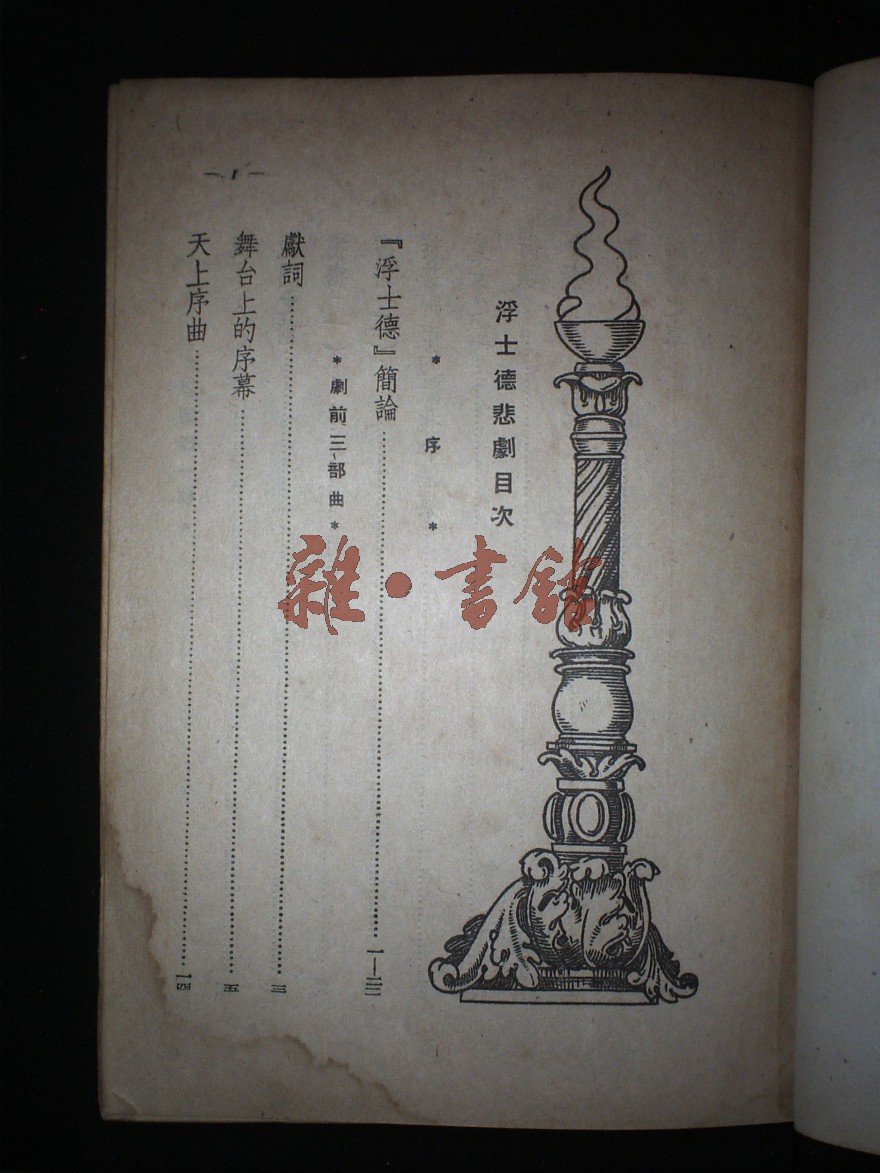 浮士德悲劇目次
* 序 *
『浮士德』簡論……一—二二
*劇前三部曲*
獻詞……三
舞台上的序幕……五
天上序曲……一四
— 1 —
雜·書館